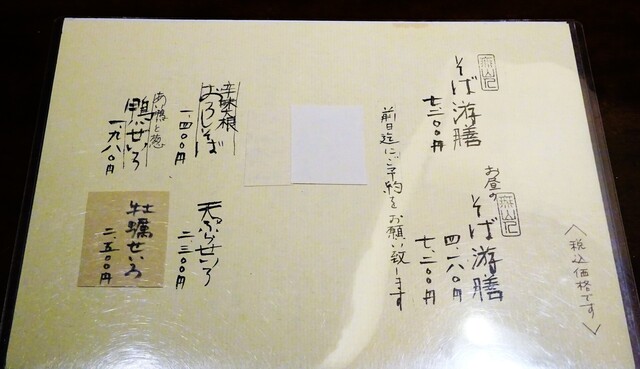 〈税込価格です〉
お昼の
そば游膳
四、一八〇円
七、二〇〇円
そば游膳
七、二〇〇円
前日迄にご予約をお願い致します
辛味大根
おろしそば
一、四〇〇円
天ぷらせいろ
二、三〇〇円
あい鴨と葱
鴨せいろ
一、九八〇円
牡蠣せいろ
二、五〇〇円